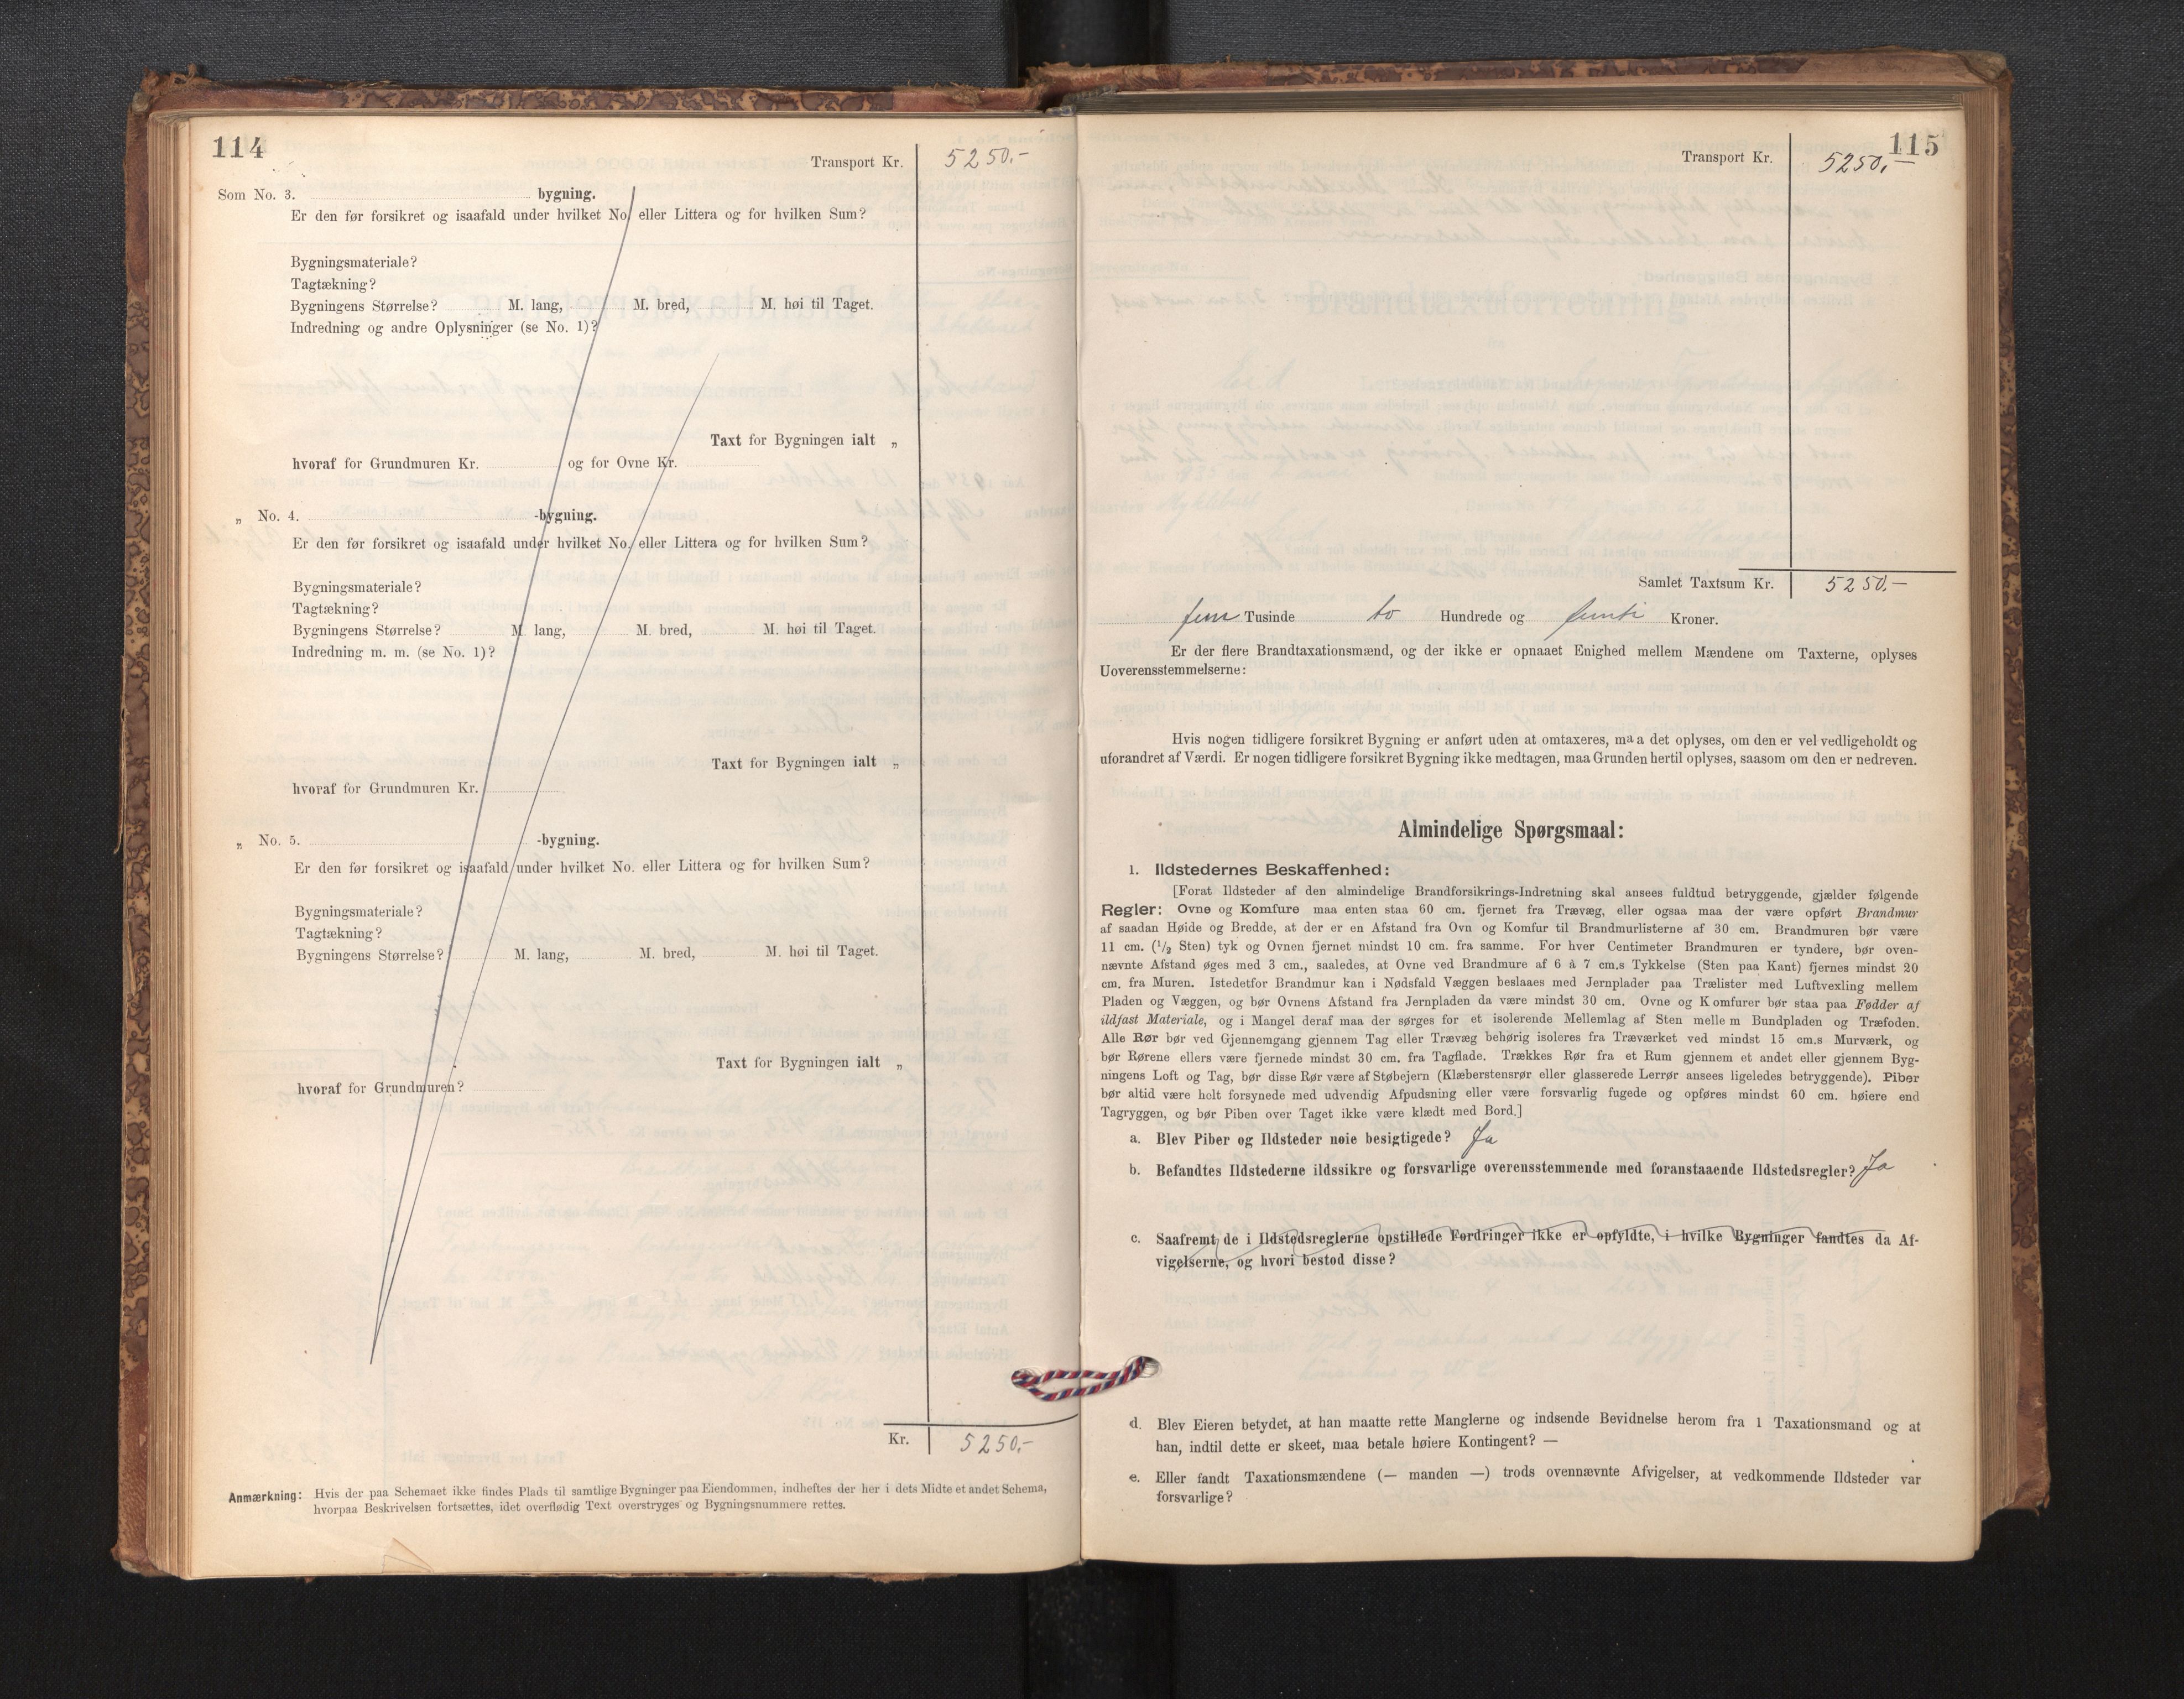 114
Transport Kr. 5250.-
Som No. 3. bygning.
Er den før forsikret og isaafald under hvilket No. eller Littera og for hvilken Sum?
Bygningsmateriale?
Tagtækning?
Bygningens Størrelse? M. lang, M. bred, M. høi til Taget.
Indredning og andre Oplysninger (se No. 1)?
Taxt for Bygningen ialt „
hvoraf for Grundmuren Kr. og for Ovne Kr.
„ No. 4. -bygning.
Er den før forsikret og isaafald under hvilket No. eller Littera og for hvilken Sum?
Bygningsmateriale?
Tagtækning?
Bygningens Størrelse? M. lang, M. bred, M. høi til Taget.
Indredning m. m. (se No. 1)?
Taxt for Bygningen ialt „
hvoraf for Grundmuren Kr.
„ No. 5. -bygning.
Er den før forsikret og isaafald under hvilket No. eller Littera og for hvilken Sum?
Bygningsmateriale?
Tagtækning?
Bygningens Størrelse? M. lang, M. bred, M. høi til Taget.
Taxt for Bygningen ialt „
hvoraf for Grundmuren?
Kr. 5250.-
Anmærkning: Hvis der paa Schemaet ikke findes Plads til samtlige Bygninger paa Eiendommen, indheftes der her i dets Midte et andet Schema,
hvorpaa Beskrivelsen fortsættes, idet overflødig Text overstryges og Bygningsnummere rettes.
115
Transport Kr. 5250.-
Samlet Taxtsum Kr. 5250.-
fem Tusinde to Hundrede og femti Kroner.
Er der flere Brandtaxationsmænd, og der ikke er opnaaet Enighed mellem Mændene om Taxterne, oplyses
Uoverensstemmelserne:
Hvis nogen tidligere forsikret Bygning er anført uden at omtaxeres, maa det oplyses, om den er vel vedligeholdt og
uforandret af Værdi. Er nogen tidligere forsikret Bygning ikke medtagen, maa Grunden hertil oplyses, saasom om den er nedreven.
Almindelige Spørgsmaal:
1. Ildstedernes Beskaffenhed:
[Forat Ildsteder af den almindelige Brandforsikrings-Indretning skal ansees fuldtud betryggende, gjælder følgende
Regler: Ovne og Komfure maa enten staa 60 cm. fjernet fra Trævæg, eller ogsaa maa der være opført Brandmur
af saadan Høide og Bredde, at der er en Afstand fra Ovn og Komfur til Brandmurlisterne af 30 cm. Brandmuren bør være
11 cm. (1/2 Sten) tyk og Ovnen fjernet mindst 10 cm. fra samme. For hver Centimeter Brandmuren er tyndere, bør oven-
nævnte Afstand øges med 3 cm., saaledes, at Ovne ved Brandmure af 6 à 7 cm.s Tykkelse (Sten paa Kant) fjernes mindst 20
cm. fra Muren. Istedetfor Brandmur kan i Nødsfald Væggen beslaaes med Jernplader paa Trælister med Luftvexling mellem
Pladen og Væggen, og bør Ovnens Afstand fra Jernpladen da være mindst 30 cm. Ovne og Komfurer bør staa paa Fødder af
ildfast Materiale, og i Mangel deraf maa der sørges for et isolerende Mellemlag af Sten mellem Bundpladen og Træfoden.
Alle Rør bør ved Gjennemgang gjennem Tag eller Trævæg behørig isoleres fra Træværket ved mindst 15 cm.s Murværk, og
bør Rørene ellers være fjernede mindst 30 cm. fra Tagflade. Trækkes Rør fra et Rum gjennem et andet eller gjennem Byg-
ningens Loft og Tag, bør disse Rør være af Støbejern (Klæberstensrør eller glasserede Lerrør ansees ligeledes betryggende). Piber
bør altid være helt forsynede med udvendig Afpudsning eller være forsvarlig fugede og opføres mindst 60 cm. høiere end
Tagryggen, og bør Piben over Taget ikke være klædt med Bord.]
a. Blev Piber og Ildsteder nøie besigtigede? Ja
b. Befandtes Ildstederne ildssikre og forsvarlige overensstemmende med foranstaaende Ildstedsregler? Ja
c. Saafremt de i Ildstedsreglerne opstillede Fordringer ikke er opfyldte, i hvilke Bygninger fandtes da Af-
vigelserne, og hvori bestod disse?
d. Blev Eieren betydet, at han maatte rette Manglerne og indsende Bevidnelse herom fra 1 Taxationsmand og at
han, indtil dette er skeet, maa betale høiere Kontingent? —
e. Eller fandt Taxationsmændene (— manden —) trods ovennævnte Afvigelser, at vedkommende Ildsteder var
forsvarlige?